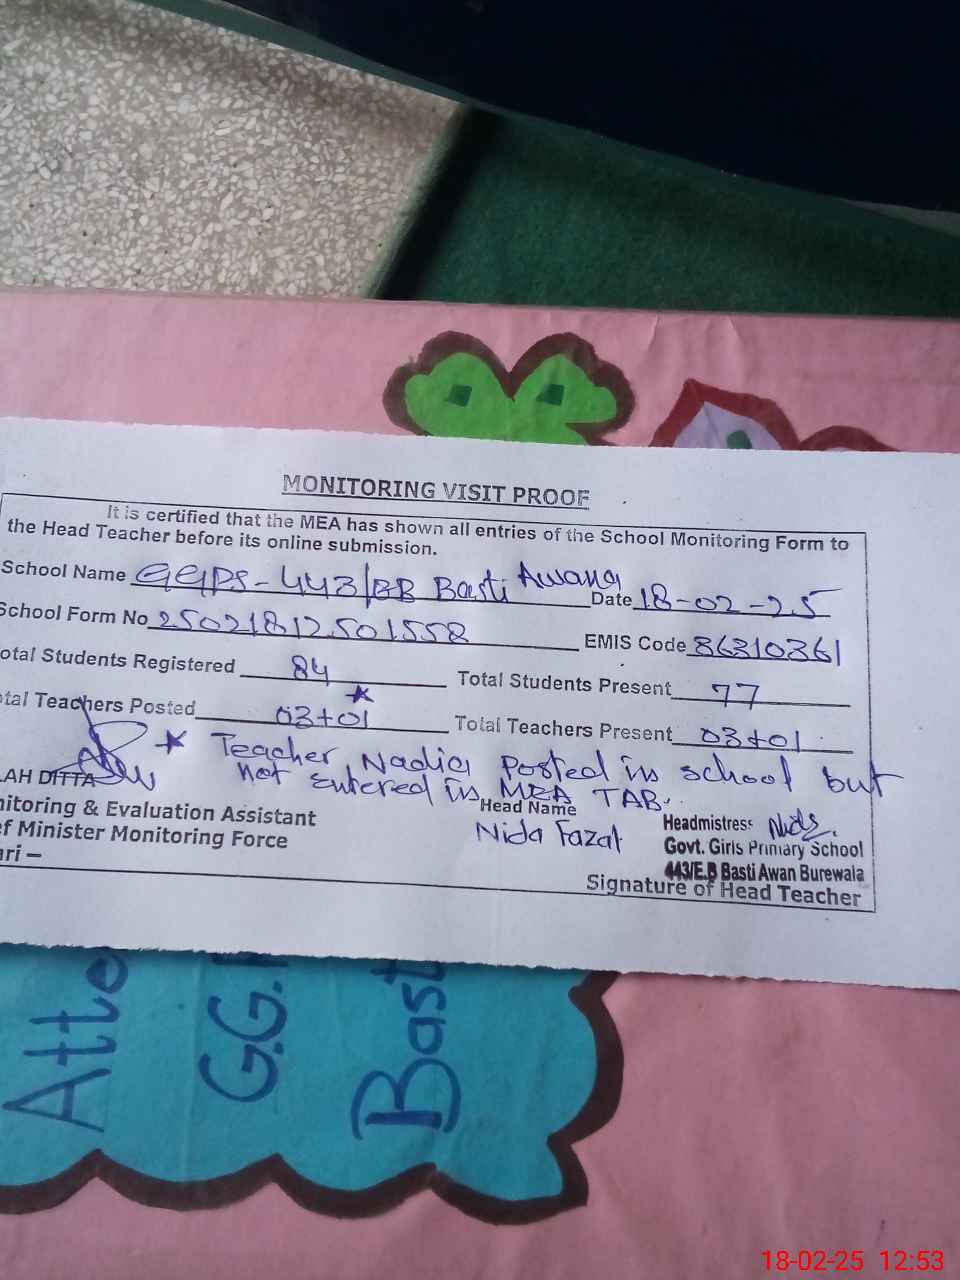 MONITORING VISIT PROOF
It is certified that the MEA has shown all entries of the School Monitoring Form to
the Head Teacher before its online submission.
School Name GGPS-443/EB Basti Awana Date 18-02-25
School Form No 25021812501558 EMIS Code 36310361
otal Students Registered 84 Total Students Present 77
otal Teachers Posted 03+01 * Total Teachers Present 03+01
* Teacher Nadia posted in school but
not entered in MEA TAB.
LAH DITTA
Head Name
nitoring & Evaluation Assistant
Nida Fazal
Headmistress Nida
ef Minister Monitoring Force
Govt. Girls Primary School
ari –
443/E.B Basti Awan Burewala
Signature of Head Teacher
Atte
G.G.
Bast
18-02-25 12:53